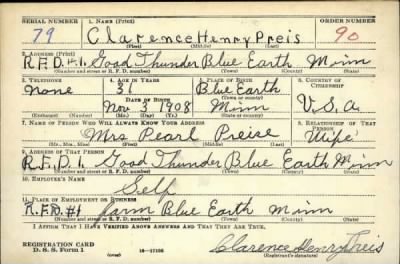 SERIAL NUMBER 1. NAME (Print) ORDER NUMBER
79 Clarence Henry Preis 90
(First) (Middle) (Last)
2. ADDRESS (Print)
R.F.D.#1. Good Thunder Blue Earth Minn
(Number and street or R. F. D. number) (Town) (County) (State)
3. TELEPHONE 4. AGE IN YEARS 5. PLACE OF BIRTH 6. COUNTRY OF CITIZENSHIP
None 31 Blue Earth
DATE OF BIRTH (Town or county)
Nov 3 1908 Minn U.S.A.
(Exchange) (Number) (Mo.) (Day) (Yr.) (State or country)
7. NAME OF PERSON WHO WILL ALWAYS KNOW YOUR ADDRESS 8. RELATIONSHIP OF THAT PERSON
Mrs Pearl Preise Wife
(Mr., Mrs., Miss) (First) (Middle) (Last)
9. ADDRESS OF THAT PERSON
R.F.D.1. Good Thunder Blue Earth Minn
(Number and street or R. F. D. number) (Town) (County) (State)
10. EMPLOYER'S NAME
Self
11. PLACE OF EMPLOYMENT OR BUSINESS
R.F.D.#1 Farm Blue Earth Minn
(Number and street or R. F. D. number) (Town) (County) (State)
I AFFIRM THAT I HAVE VERIFIED ABOVE ANSWERS AND THAT THEY ARE TRUE.
REGISTRATION CARD
D. S. S. Form 1 (over) Clarence Henry Preis
(Registrant's signature)